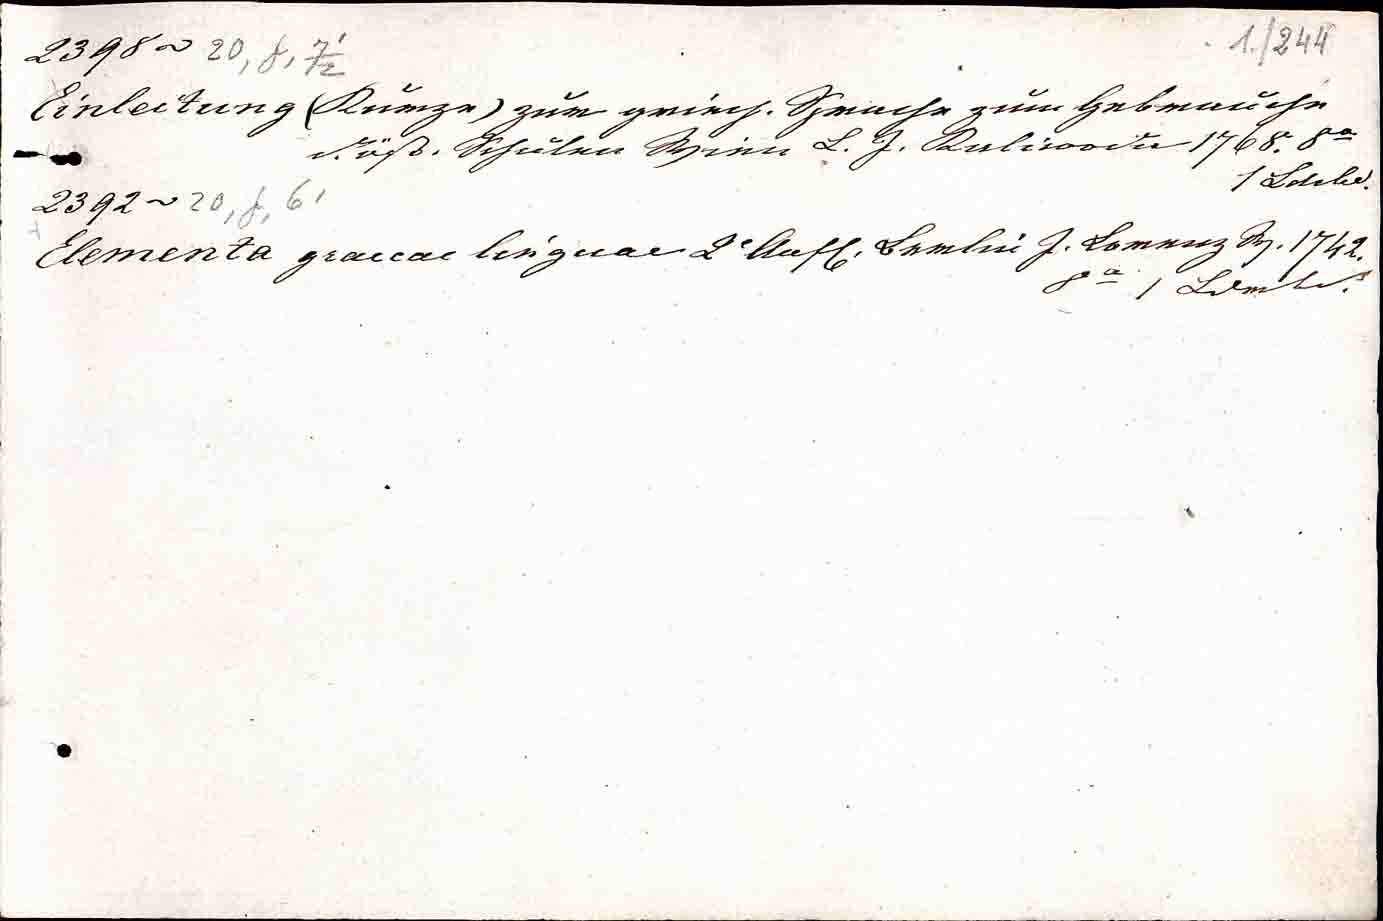 2398~ 20, f, 7½' 1./244
Einleitung (Kurze) zur griech. Sprache zum Gebrauche
d. öst. Schulen Wien L. J. Kaliwoda 1768. 8°
1 Ldrbd.
2392~ 20, f, 6'
Elementa graecae linguae 2e Aufl. Berlin J. Lorenz W. 1742.
8° 1 Ldrbd.